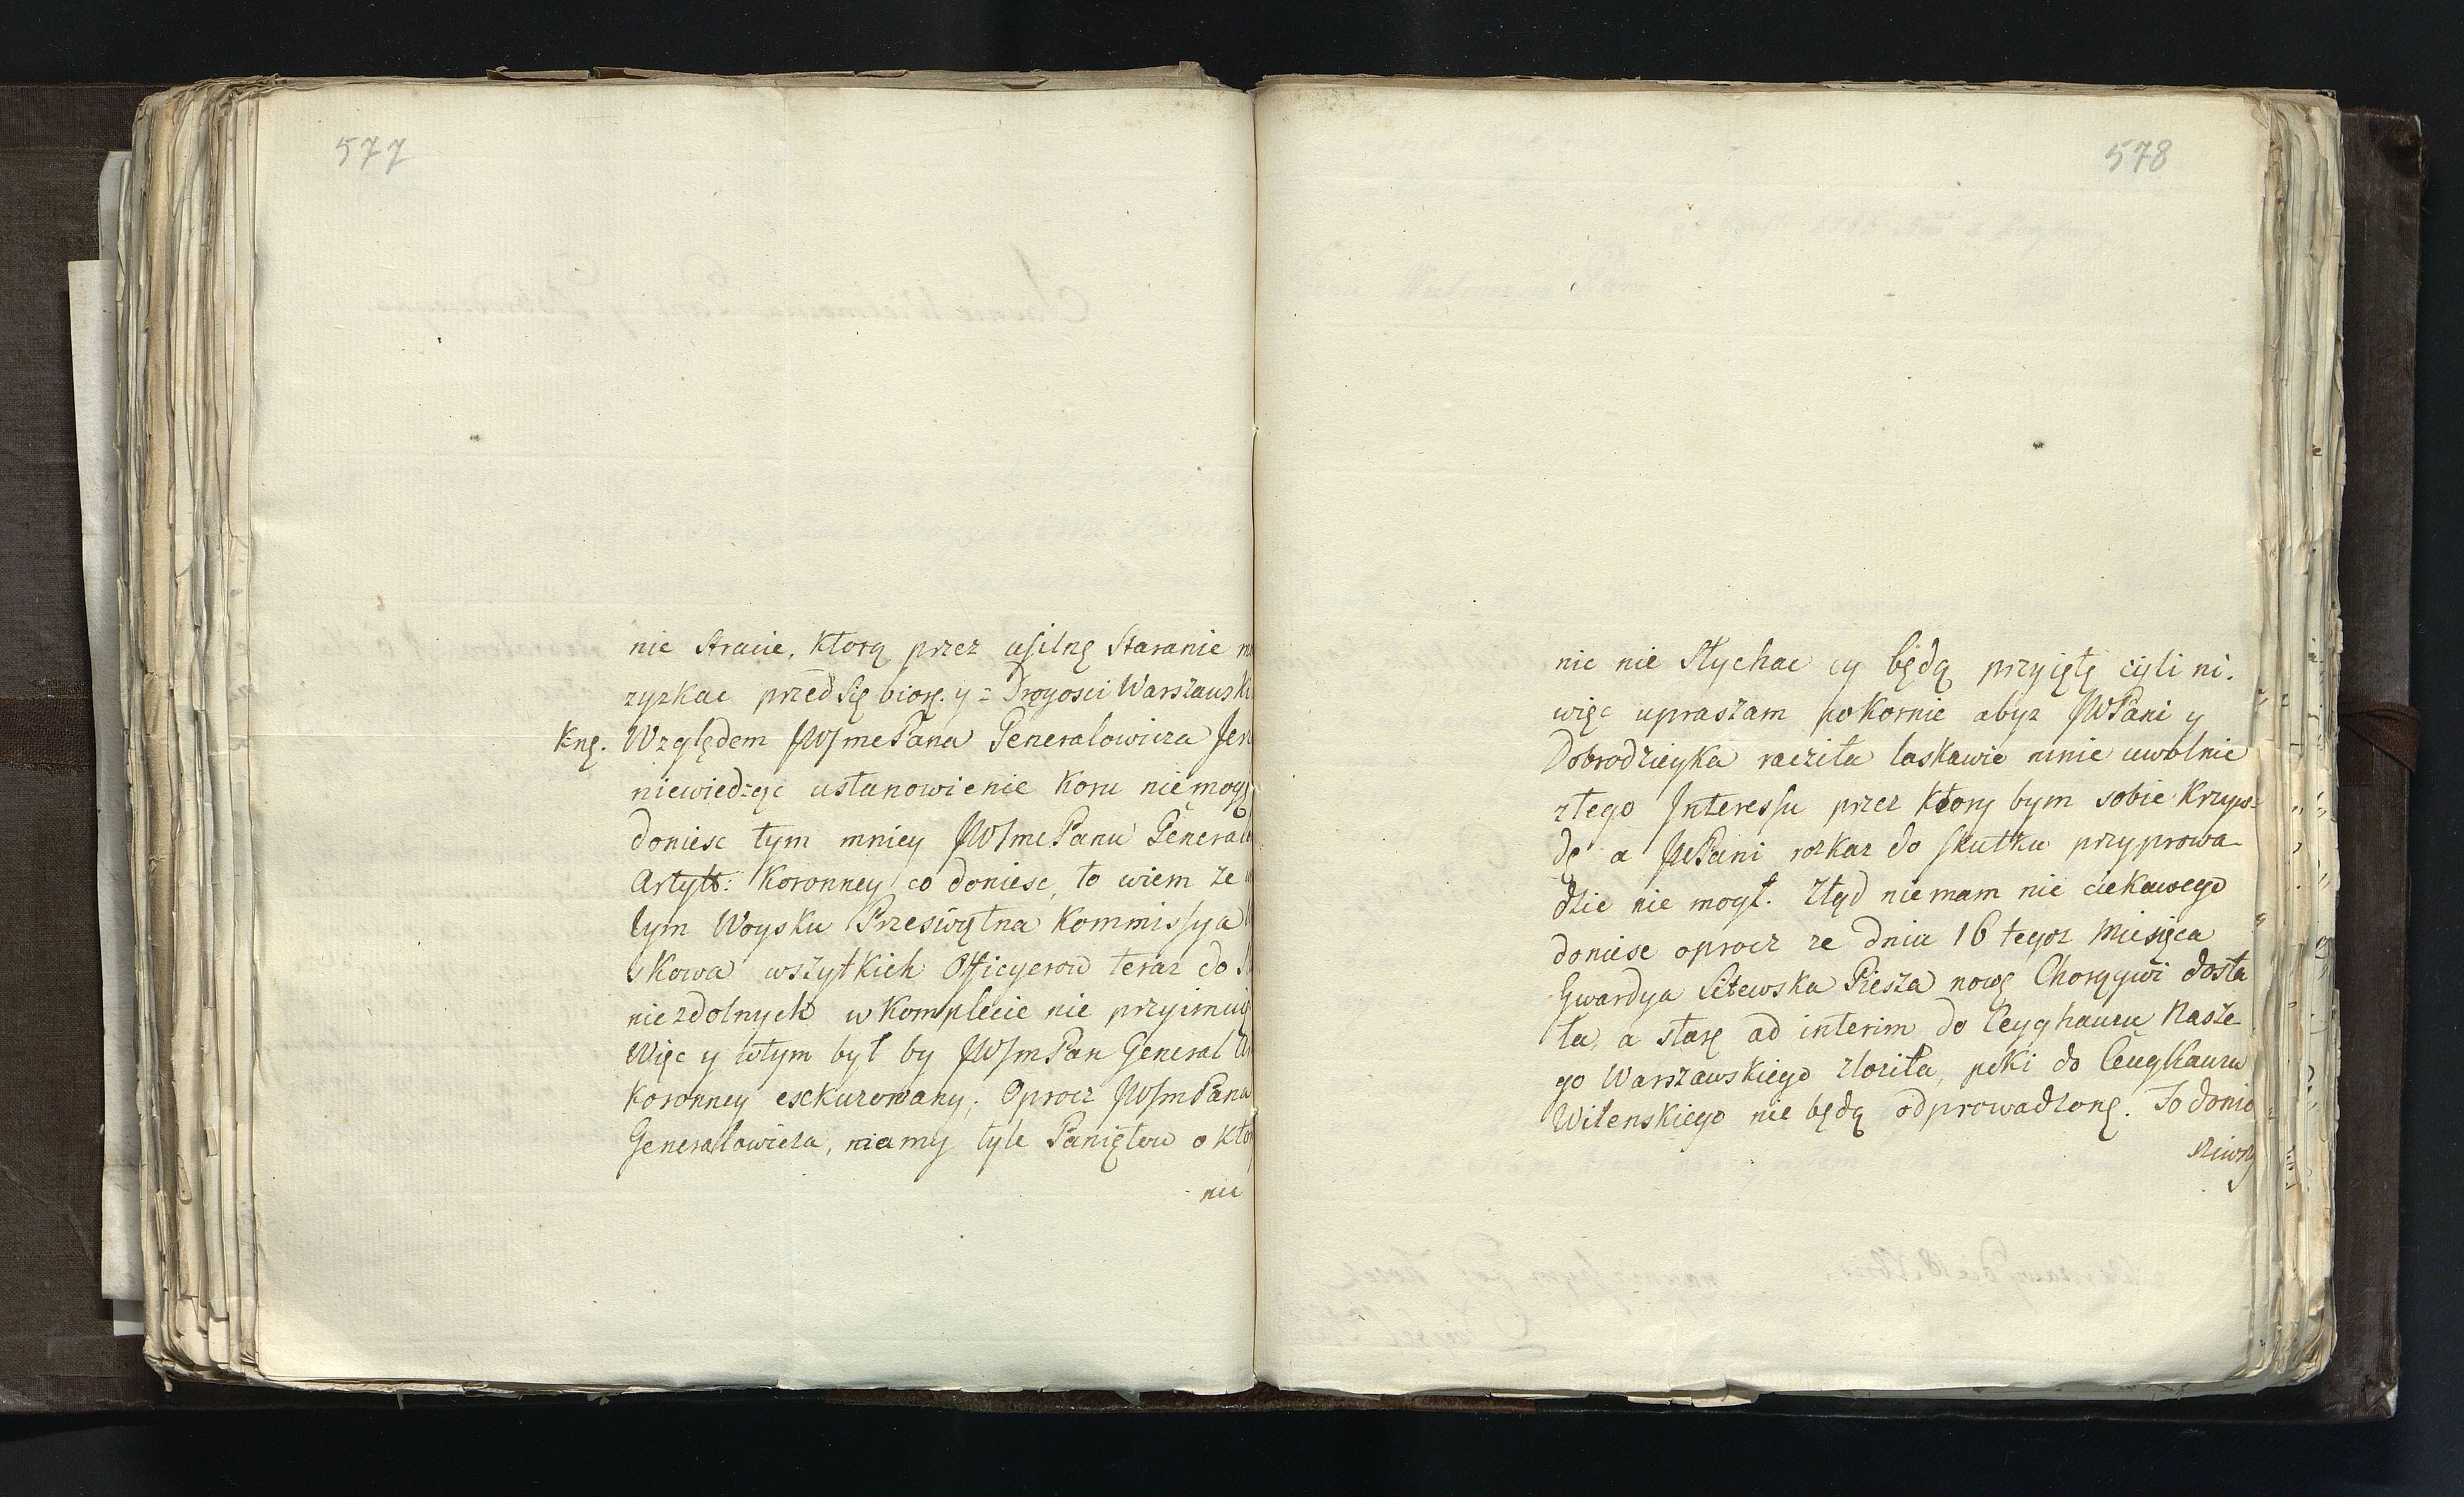 577
nie stracie, ktorą przez usilnę Staranie
zyzkac przedsię biorę. y z Drogosci Warszawski
knę. Względem JWJmePana Generalowicza
niewiedzęc ustanowienie Koru niemogę
doniesc tym mniey JWJmePanu General
Artyll: Koronney co doniesc, to wiem ze
tym Woysku Przeswiętna Kommissya
skowa wszytkich Officyerow teraz do
niezdolnych w Komplecie nie przyimuię
Więc y wtym był by JWJmPan General
Koronney exkuzowany; Oprocz JWJmPana
Generalowicza, mamy tyle Paniętow o kto
nic
578
nic nie Słychac cy będą przyiętę cyli ni.
więc upraszam pokornie abyz JWPani y
Dobrodzieyka raczita laskawie mnie uwolnie
ztego Interessu przez ktory bym sobie Krzyw-
dę a JWPani rozkaz do skutku przyprowa-
dzic nie mogł. Ztąd niemam nic ciekawego
doniesc oprocz ze dniu 16 tegoz Miesięca
Gwardya Litewska Piesza nowę Chorągwi dosta
ła, a starę ad interim do Ceyghauzu Nasze-
go Warszawskiego złozita, poki do Ceughauzu
Wilenskiego nie będą odprowadzonę. To donio
sziwszy